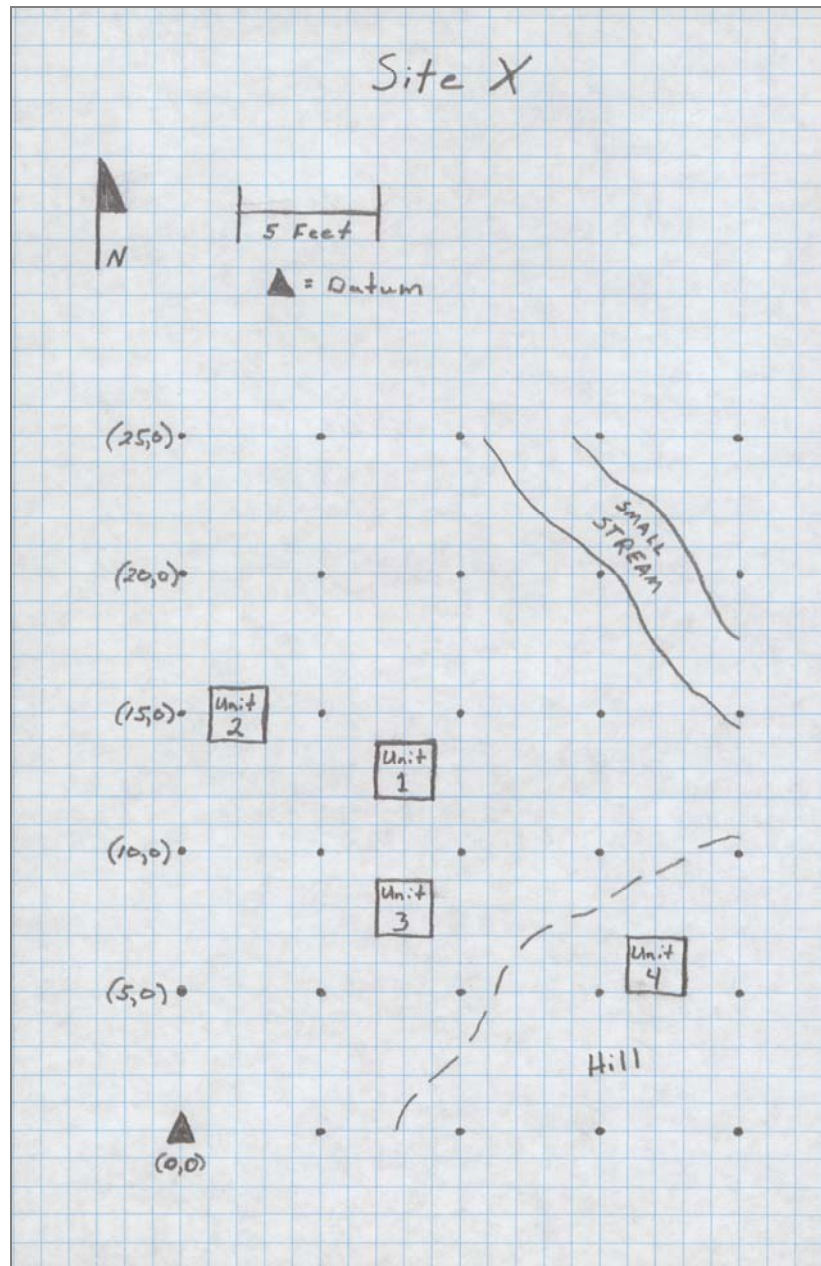 Site X
N
5 Feet
▲ = Datum
(25,0)
SMALL
STREAM
(20,0)
(15,0)
Unit
2
Unit
1
(10,0)
Unit
3
(5,0)
Unit
4
Hill
(0,0)